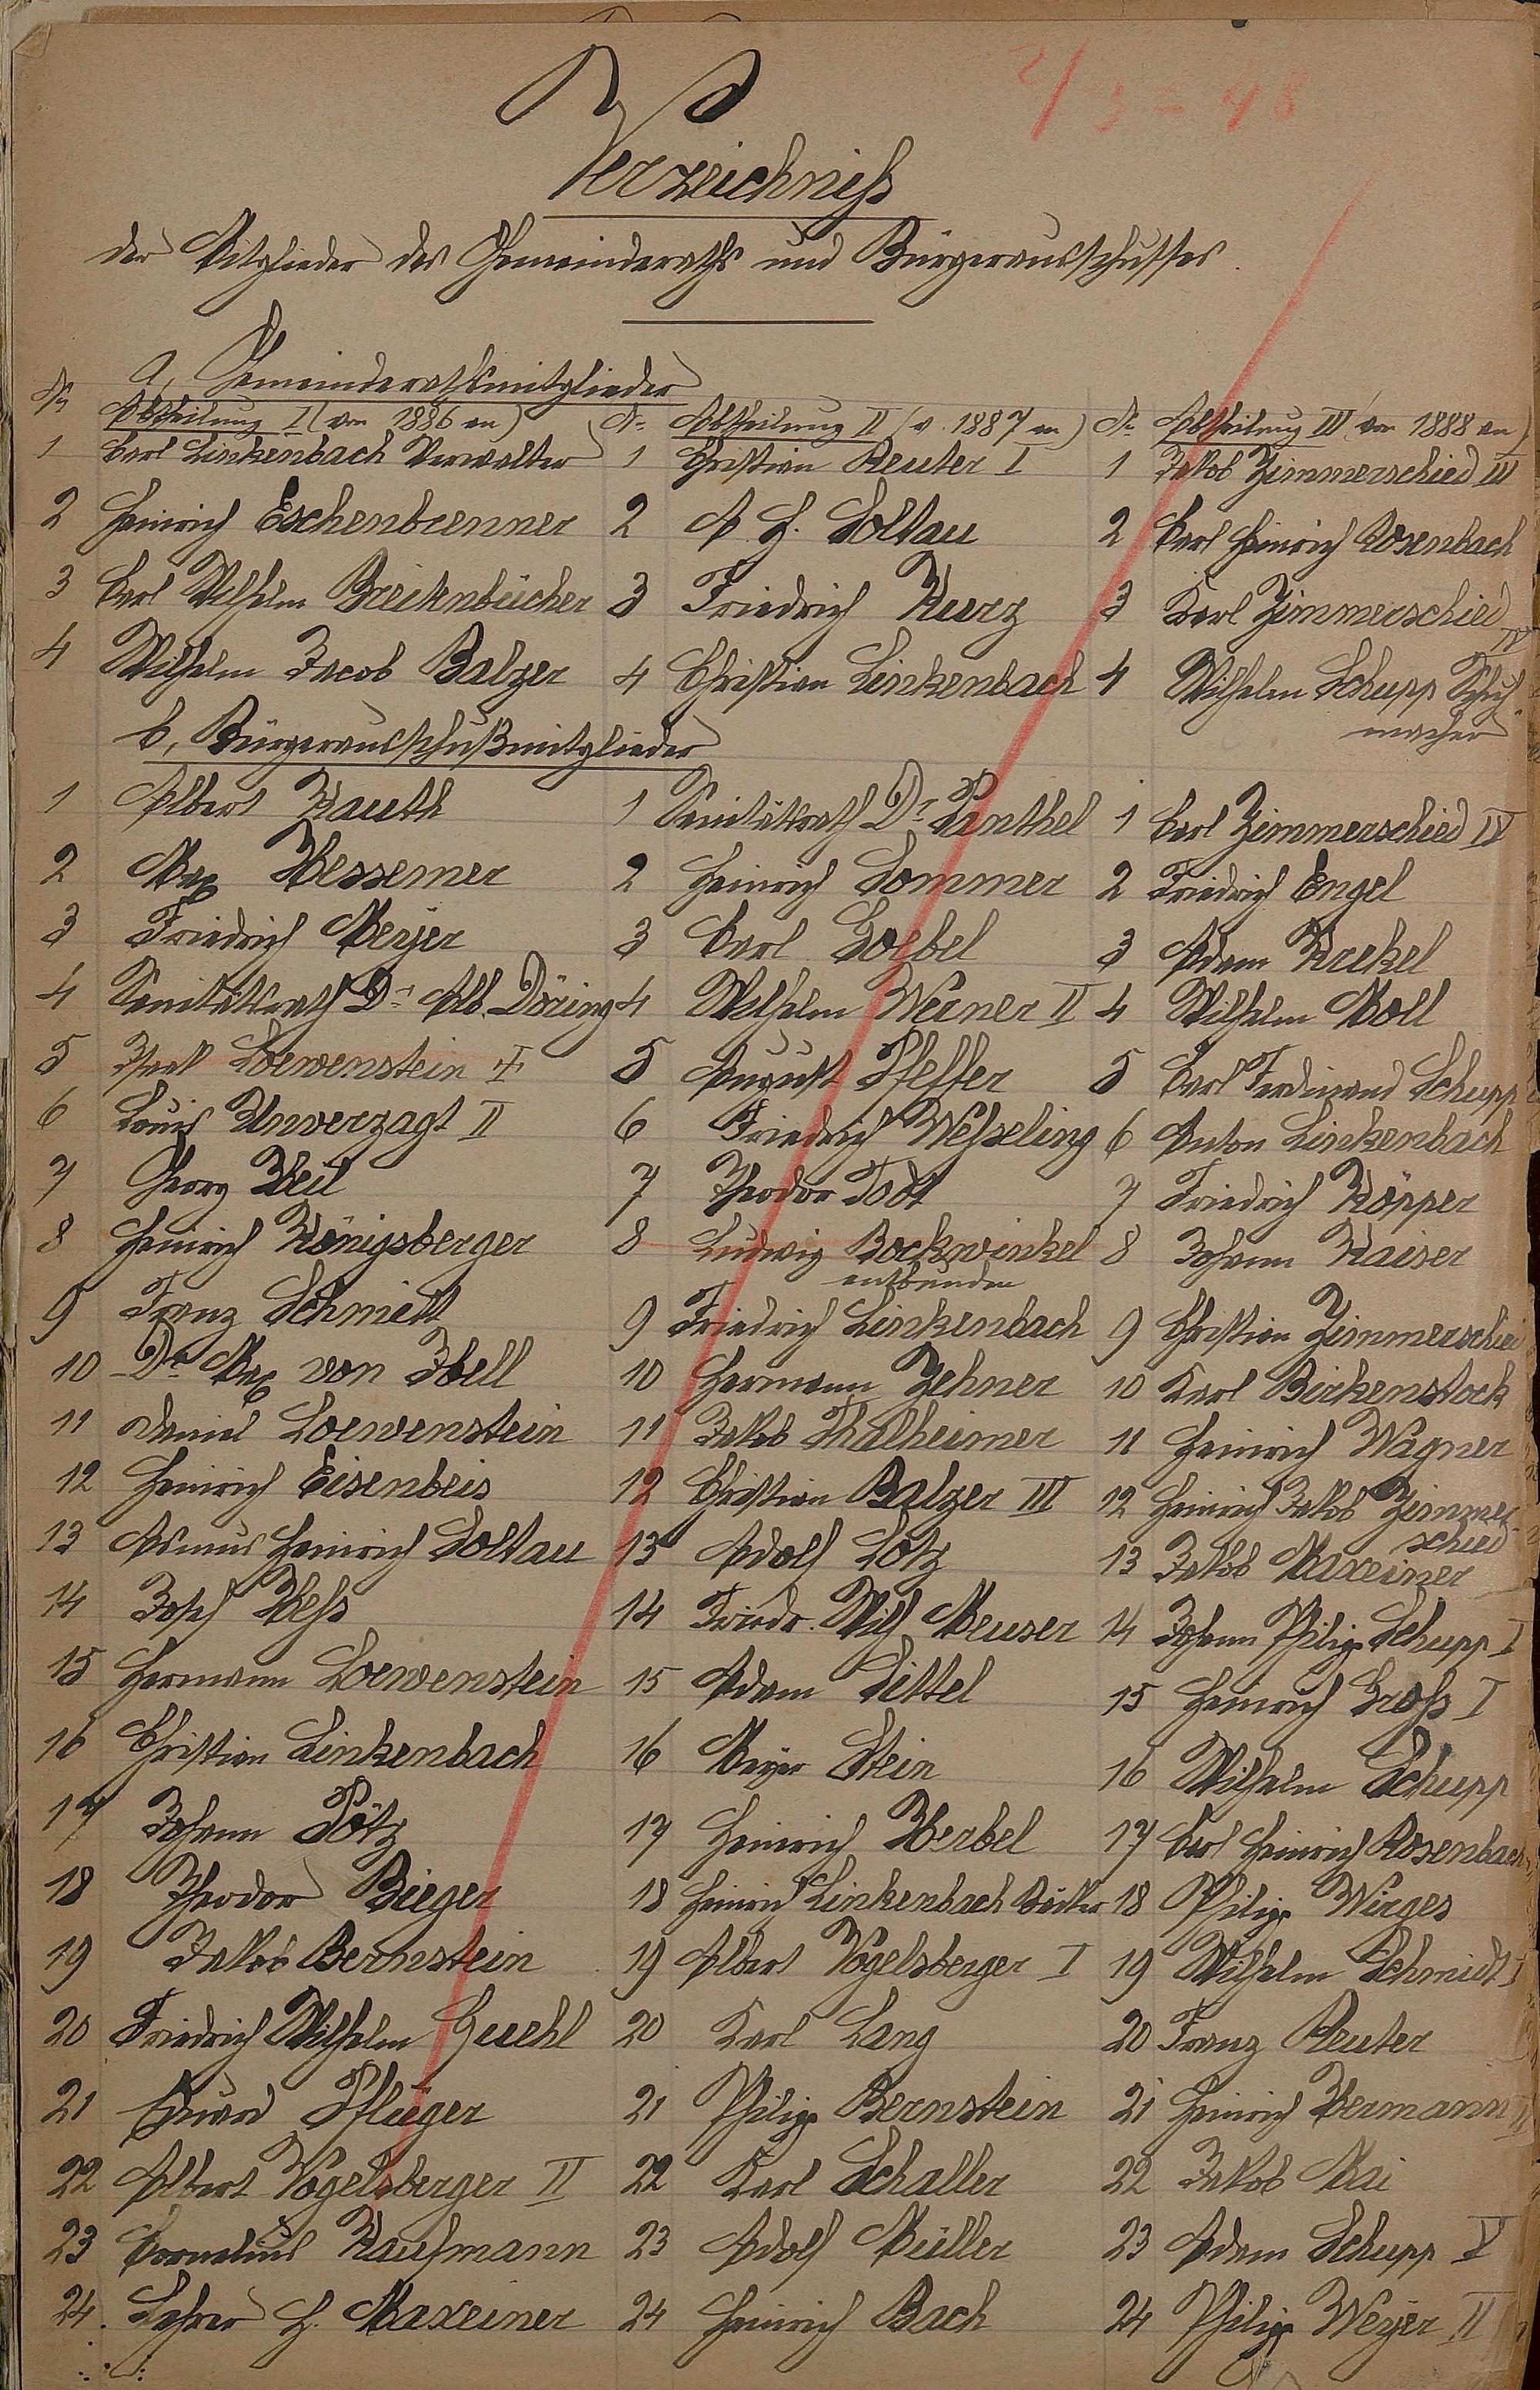 2/3 - 48
Verzeichniß
der Mitglieder des Gemeinderaths und Bürgerausschusses.
a, Gemeinderathsmitglieder
No Abtheilung I (von 1886 an) No Abtheilung II (v. 1887 an) No Abtheilung III (von 1888 an)
1 Carl Linkenbach Verwalter 1 Christian Reuter I 1 Jakob Zimmerschied III
2 Heinrich Eschenbrenner 2 A. H. Soltau 2 Carl Heinrich Rosenbach
3 Carl Wilhelm Breitenbücher 3 Friedrich Kurz 3 Karl Zimmerschied IV
4 Wilhelm Jacob Balzer 4 Christian Linkenbach 4 Wilhelm Schupp Schuh-
macher
b, Bürgerausschußmitglieder
1 Albert Kauth 1 Sanitätsrath Dr Panthel 1 Carl Zimmerschied IV
2 Max Messemer 2 Heinrich Sommer 2 Friedrich Engel
3 Friedrich Meyer 3 Carl Goebel 3 Adam Krekel
4 Sanitätsrath Dr Alb. Döring 4 Wilhelm Werner II 4 Wilhelm Moll
5 Isak Loewenstein + 5 August Pfeffer 5 Carl Ferdinand Schupp
6 Louis Unverzagt II 6 Friedrich Weßeling 6 Anton Linkenbach
7 Georg Weil 7 Theodor Todt 7 Friedrich Köpper
8 Heinrich Königsberger 8 Ludwig Bockwinkel 8 Johann Kaiser
entbunden
9 Franz Schmitt 9 Friedrich Linkenbach 9 Christian Zimmerschied
10 Dr Max von Ibell 10 Hermann Zehner 10 Karl Birkenstock
11 Daniel Loewenstein 11 Jakob Thalheimer 11 Heinrich Wagner
12 Heinrich Eisenbeis 12 Christian Balzer III 12 Heinrich Jakob Zimmer-
schied
13 Asmus Heinrich Soltau 13 Adolf Lotz 13 Jakob Maxeiner
14 Josef Heß 14 Friedr. Wilh Meuser 14 Johann Philipp Schupp I
15 Hermann Loewenstein 15 Adam Dittel 15 Heinrich Groß I
16 Christian Linkenbach 16 Meyer Stein 16 Wilhelm Schupp
17 Johann Pötz 17 Heinrich Herbel 17 Carl Heinrich Rosenbach
18 Theodor Bieger 18 Heinrich Linkenbach 18 Philipp Wirges
19 Jakob Bernstein 19 Albert Vogelsberger I 19 Wilhelm Schmidt I
20 Friedrich Wilhelm Guehl 20 Karl Lang 20 Franz Reuter
21 Eduard Pflüger 21 Philipp Bernstein 21 Heinrich Hermann II
22 Albert Vogelsberger II 22 Karl Schaller 22 Jakob Mai
23 Cornelius Kaufmann 23 Adolf Müller 23 Adam Schupp V
24. Lehrer H. Maxeiner 24 Heinrich Bach 24 Philipp Weyer II